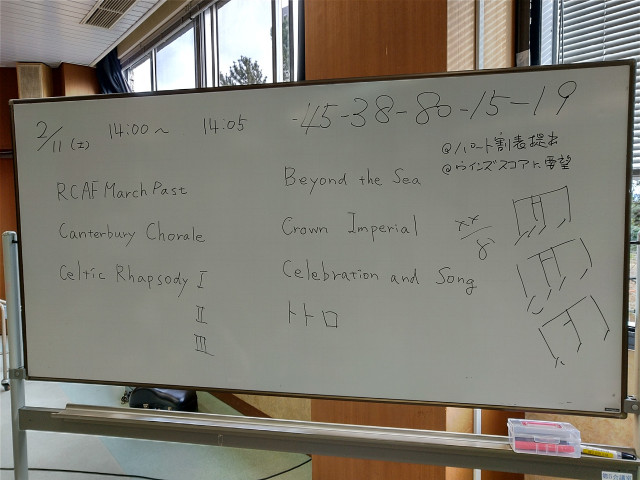 2/11(土) 14:00~ 14:05 -45-38-80-15-19
@パート割表提出
@ウインズスコアに要望
RCAF March Past
Canterbury Chorale
Celtic Rhapsody I
II
III
Beyond the Sea
Crown Imperial
Celebration and Song
トトロ
××/8